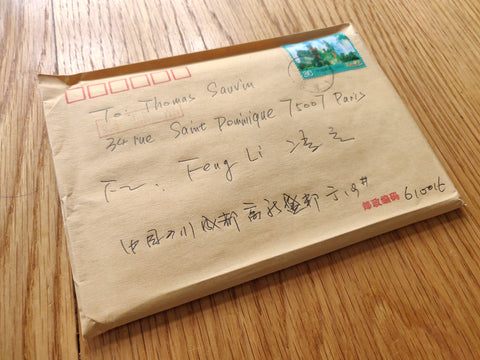 To: Thomas Sauvin
34 rue Saint Dominique 75007 Paris
Feng Li 冯立
中国四川成都高新
邮政编码 610016